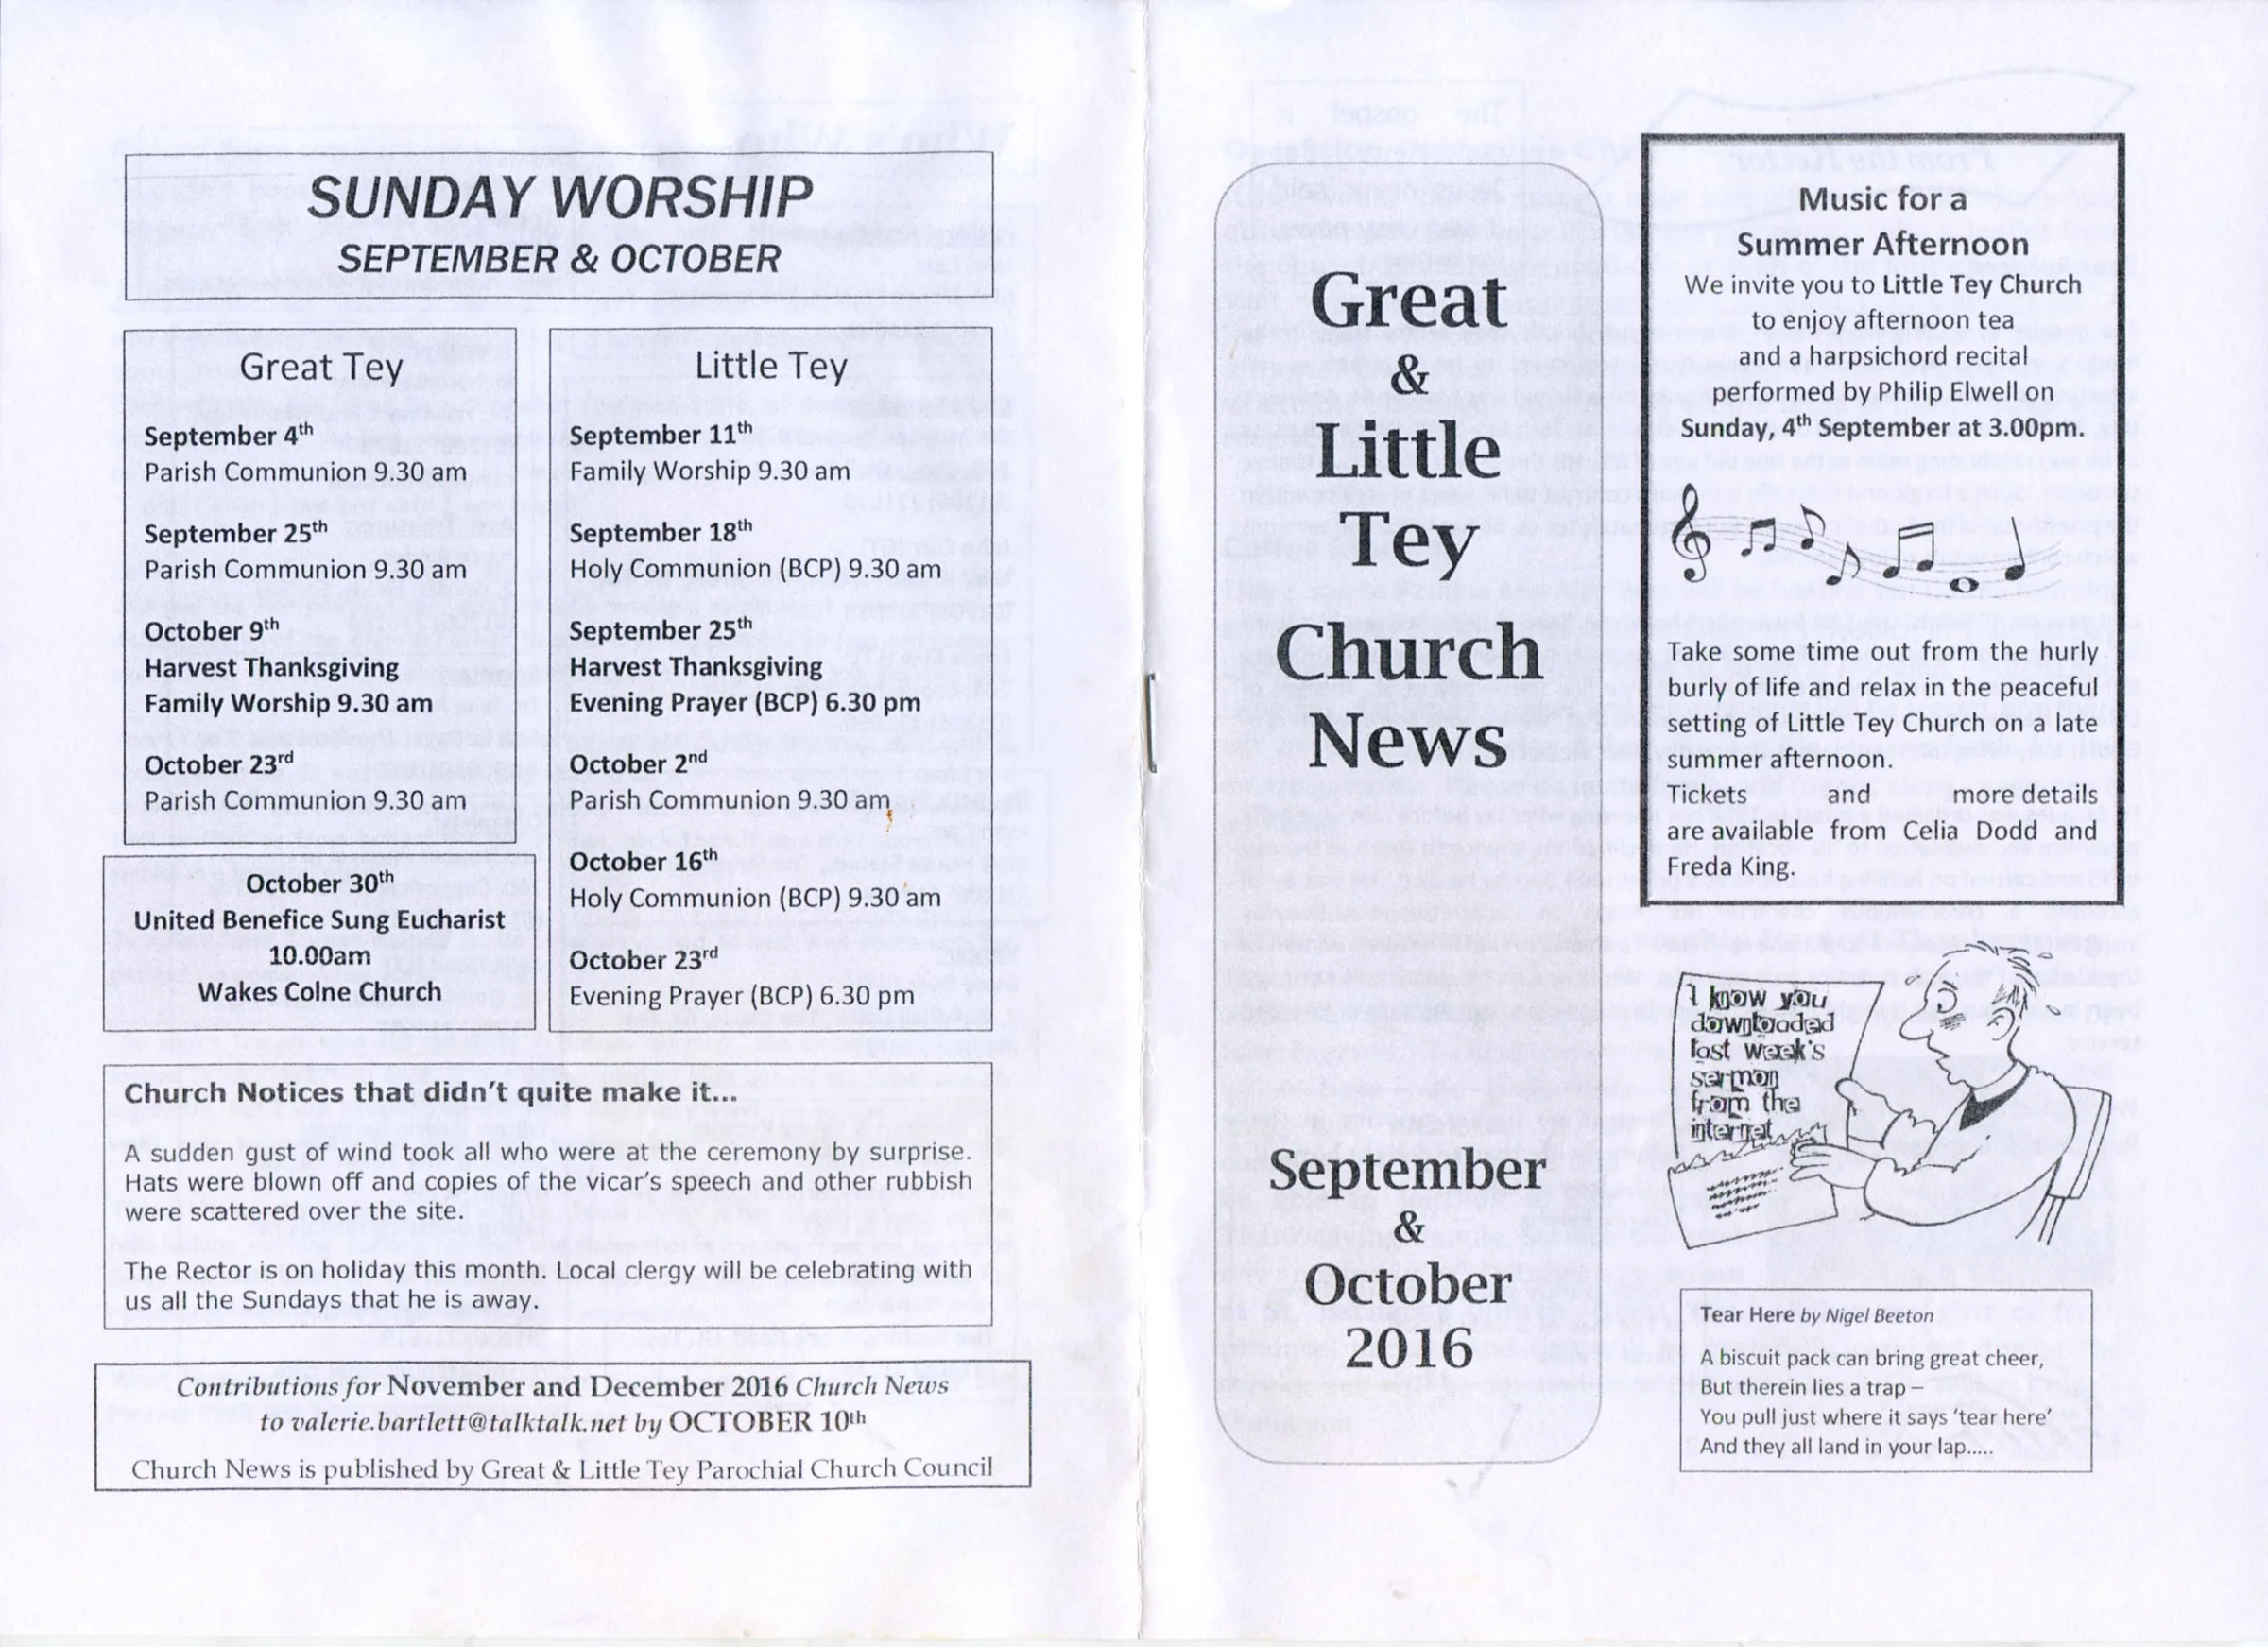 SUNDAY WORSHIP
SEPTEMBER & OCTOBER
Great Tey
September 4th
Parish Communion 9.30 am
September 25th
Parish Communion 9.30 am
October 9th
Harvest Thanksgiving
Family Worship 9.30 am
October 23rd
Parish Communion 9.30 am
October 30th
United Benefice Sung Eucharist
10.00am
Wakes Colne Church
Little Tey
September 11th
Family Worship 9.30 am
September 18th
Holy Communion (BCP) 9.30 am
September 25th
Harvest Thanksgiving
Evening Prayer (BCP) 6.30 pm
October 2nd
Parish Communion 9.30 am
October 16th
Holy Communion (BCP) 9.30 am
October 23rd
Evening Prayer (BCP) 6.30 pm
Church Notices that didn't quite make it...
A sudden gust of wind took all who were at the ceremony by surprise.
Hats were blown off and copies of the vicar's speech and other rubbish
were scattered over the site.
The Rector is on holiday this month. Local clergy will be celebrating with
us all the Sundays that he is away.
Contributions for November and December 2016 Church News
to valerie.bartlett@talktalk.net by OCTOBER 10th
Church News is published by Great & Little Tey Parochial Church Council
Great
&
Little
Tey
Church
News
September
&
October
2016
Music for a
Summer Afternoon
We invite you to Little Tey Church
to enjoy afternoon tea
and a harpsichord recital
performed by Philip Elwell on
Sunday, 4th September at 3.00pm.
Take some time out from the hurly
burly of life and relax in the peaceful
setting of Little Tey Church on a late
summer afternoon.
Tickets and more details
are available from Celia Dodd and
Freda King.
I know you
downloaded
last week's
sermon
from the
internet
Tear Here by Nigel Beeton
A biscuit pack can bring great cheer,
But therein lies a trap –
You pull just where it says 'tear here'
And they all land in your lap.....